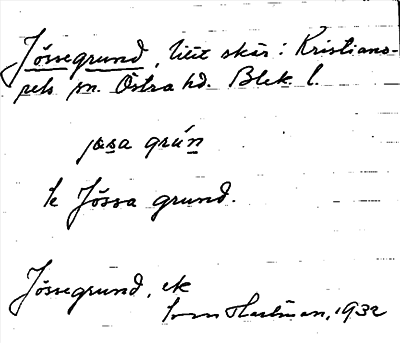 Jössegrund, litet skär i Kristiano-
pels sn. Östra hd. Blek. l.
jøsa grún
Jössa grund.
Jössegrund, ek
Hartman, 1932